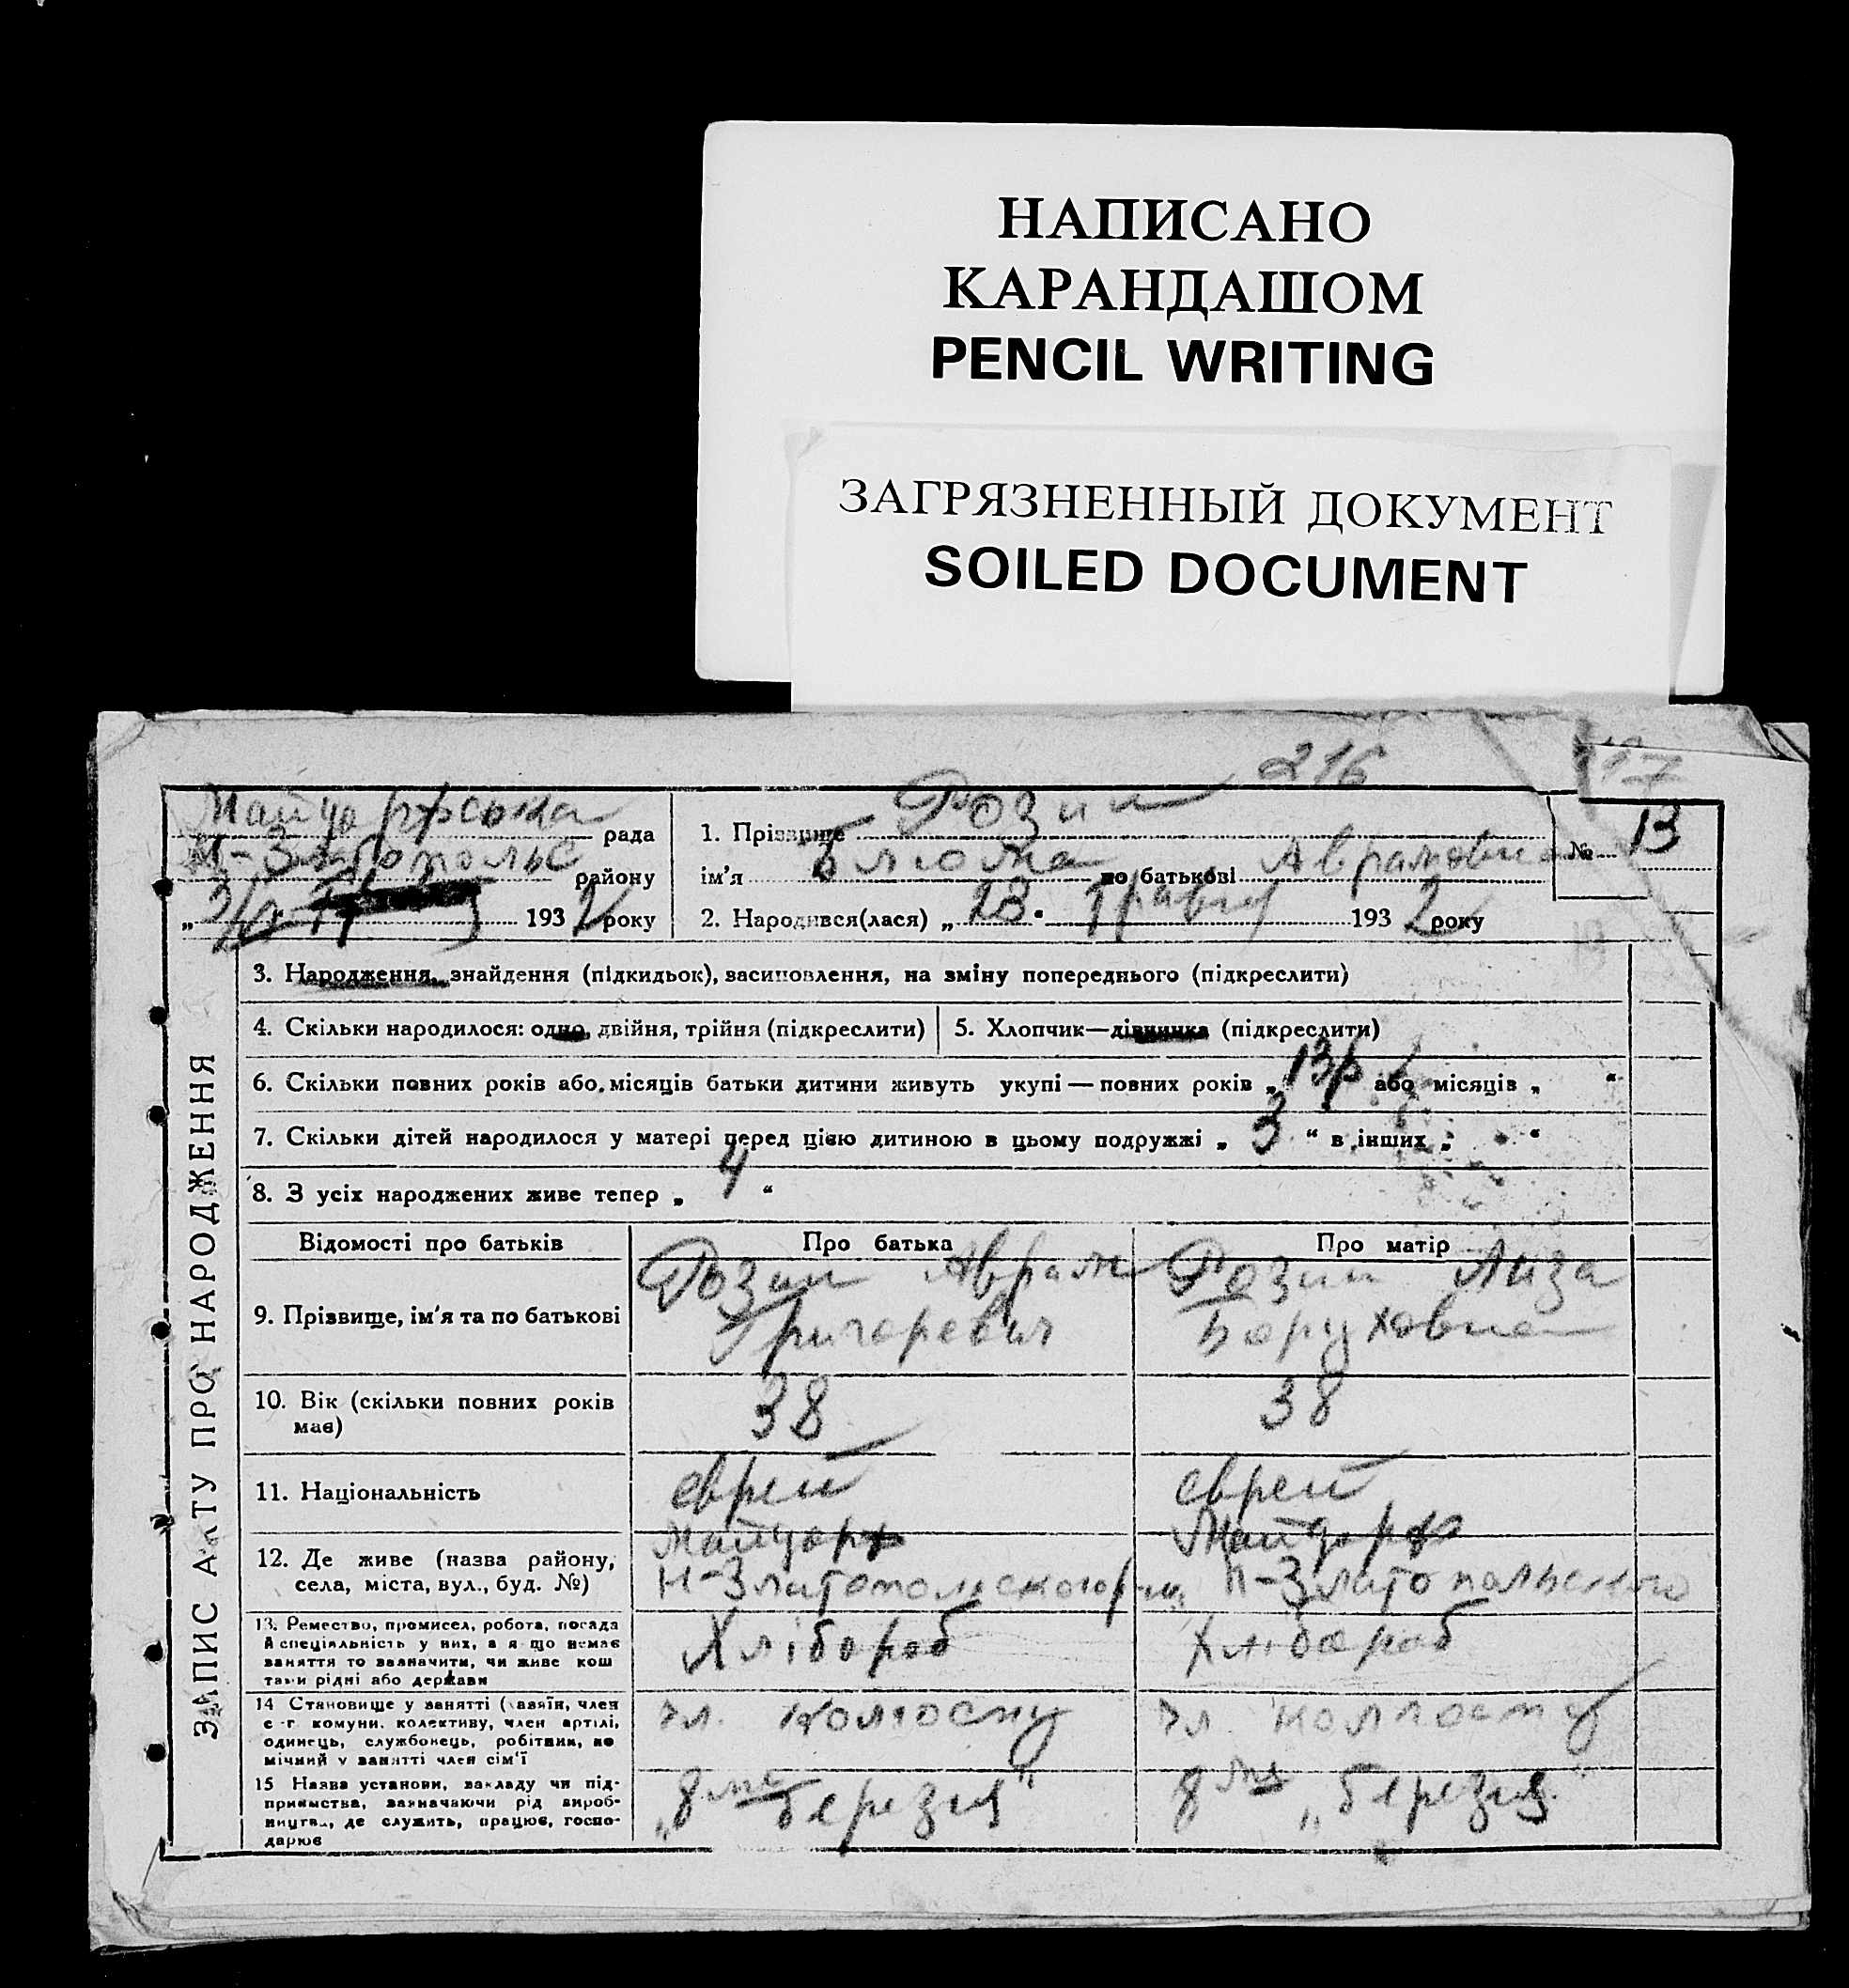 НАПИСАНО
КАРАНДАШОМ
PENCIL WRITING
ЗАГРЯЗНЕННЫЙ ДОКУМЕНТ
SOILED DOCUMENT
216
17
Майндорфська рада
Н-Златопольс району
193 2 року
1. Прізвище Розин
№ 13
ім'я Блюма по батькові Аврамовна
2. Народився(лася) „ 23 " Травня 193 2 року
ЗАПИС АКТУ ПРО НАРОДЖЕННЯ
3. Народження, знайдення (підкидьок), засиновлення, на зміну попереднього (підкреслити)
4. Скільки народилося: одно, двійня, трійня (підкреслити)
5. Хлопчик—дівчинка (підкреслити)
6. Скільки повних років або місяців батьки дитини живуть укупі — повних років „ 13р або місяців „ “
7. Скільки дітей народилося у матері перед цією дитиною в цьому подружжі „ 3 “ в інших „ “
8. З усіх народжених живе тепер „ 4 “
Відомості про батьків
Про батька
Про матір
9. Прізвище, ім'я та по батькові
Розин Аврам
Григоревич
Розин Лиза
Боруховна
10. Вік (скільки повних років
має)
38
38
11. Національність
еврей
еврей
12. Де живе (назва району,
села, міста, вул., буд. №)
Н-Златопольского
Н-Златопольського
13. Ремество, промисел, робота, посада
й спеціяльність у них, а якщо немає
заняття то зазначити, чи живе кош
тами рідні або держави
Хлібороб
Хлібороб
14 Становище у занятті (хазяїн, член
с-г комуни, колективу, член артілі,
одинець, службовець, робітник, по
мічний у занятті член сім'ї
чл. колгоспу
чл колгоспу
15 Назва установи, закладу чи під-
приємства, зазначаючи рід вироб-
ництва, де служить, працює, госпо-
дарює
„8 березня“
8 „березня“